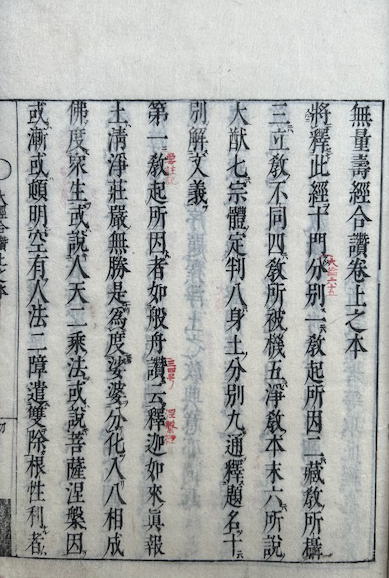 無量壽經合讚卷上之本
將釋此經十門分別一教起所因二藏教所攝
三立教不同四教所被機五淨教本末六所說
大猷七宗體定判八身土分別九通釋題名十
別解文義
第一教起所因者如般舟讚云釋迦如來眞報
土清淨莊嚴無勝是爲度娑婆分化入八相成
佛度衆生或說人天二乘法或說菩薩涅槃因
或漸或頓明空有人法二障遣雙除根性利者